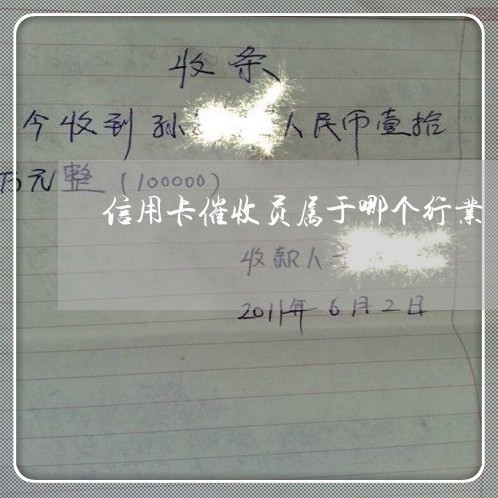 收条
今收到孙 人民币壹拾
万元整(100000)
信用卡催收员属于哪个行业
收款人
2011年6月2日